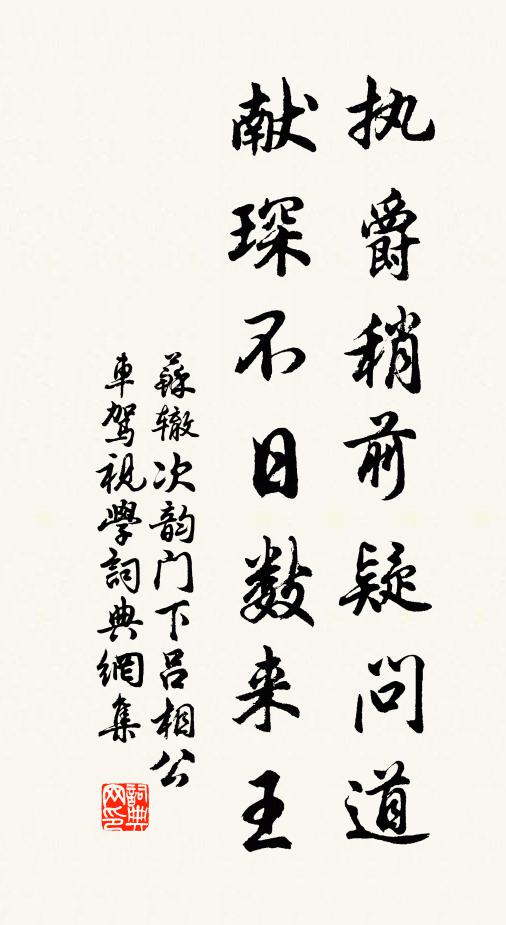 执爵稍前疑问道
献琛不日数来王
蘇辙次韵门下吕相公
车驾视學詞典網集
詞典网印